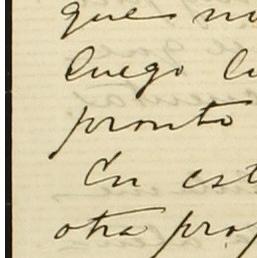 que no
luego l
pronto
En est
otra prop